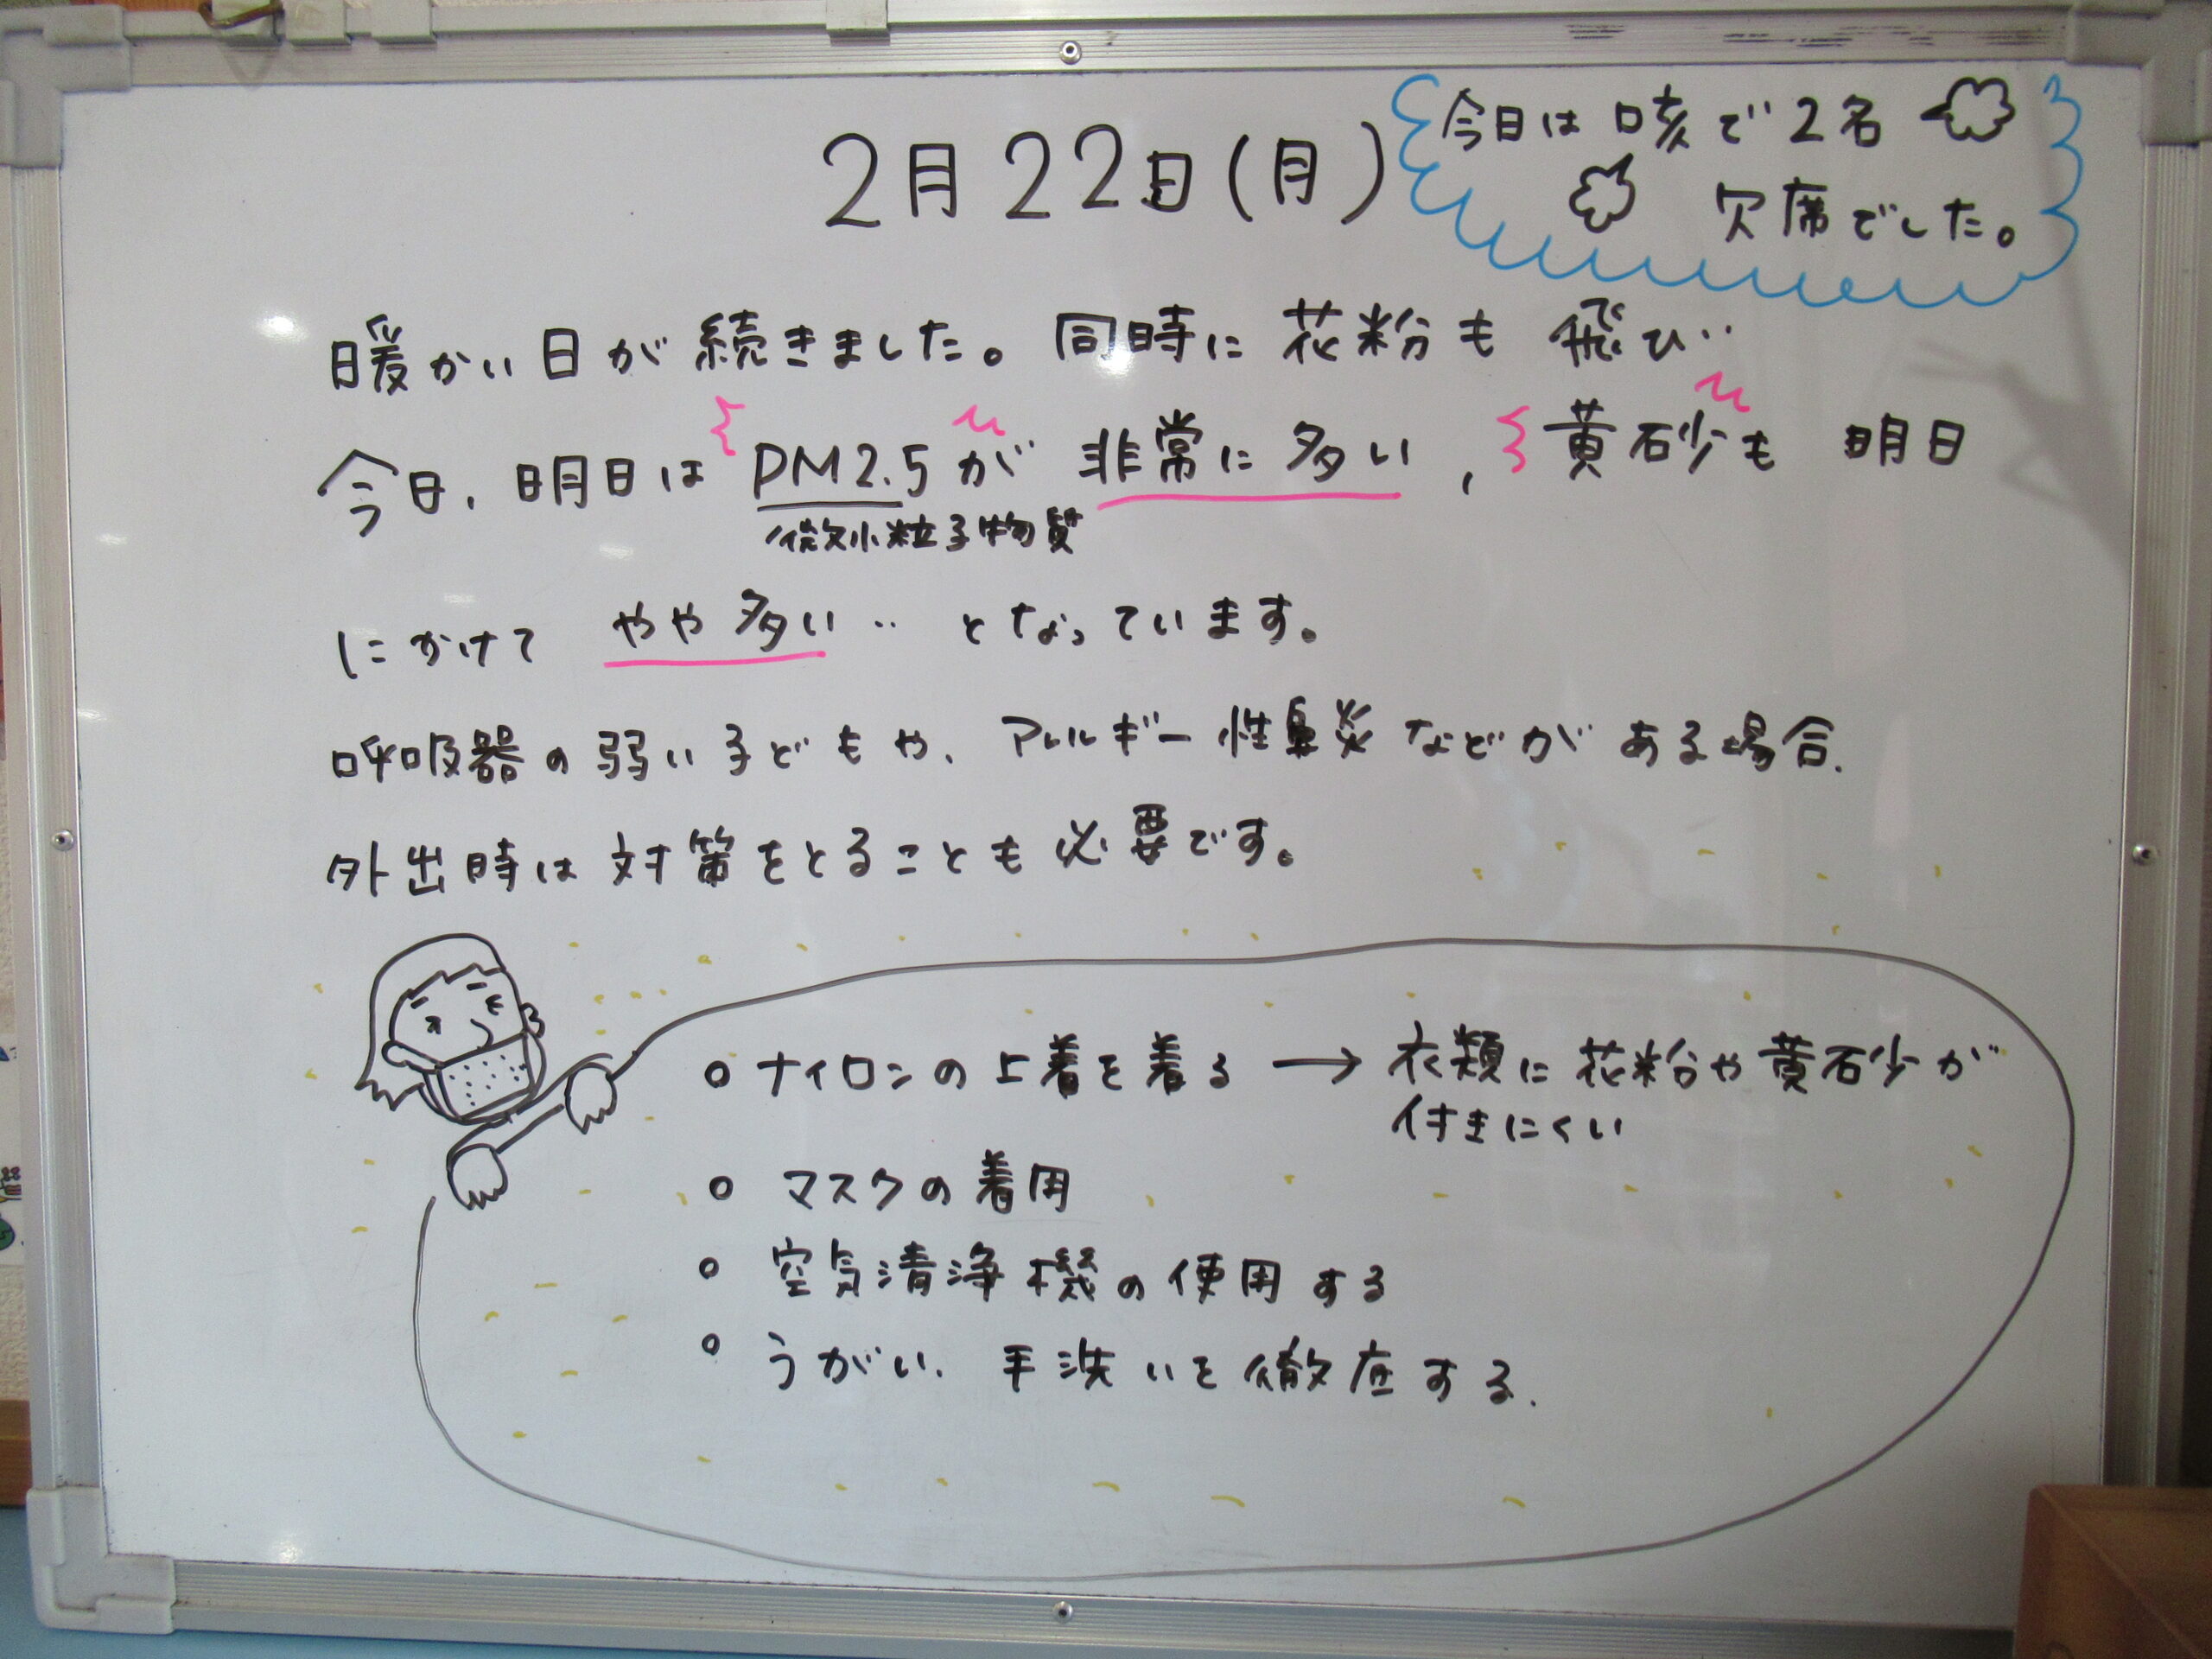 2月22日(月)
今日は咳で2名
欠席でした。
暖かい日が続きました。同時に花粉も飛び‥
今日、明日はPM2.5が非常に多い、黄砂も明日
微小粒子物質
にかけて やや多い‥ となっています。
呼吸器の弱い子どもや、アレルギー性鼻炎などがある場合、
外出時は対策をとることも必要です。
○ナイロンの上着を着る → 衣類に花粉や黄砂が
付きにくい
○ マスクの着用
○ 空気清浄機の使用する
○ うがい、手洗いを徹底する。